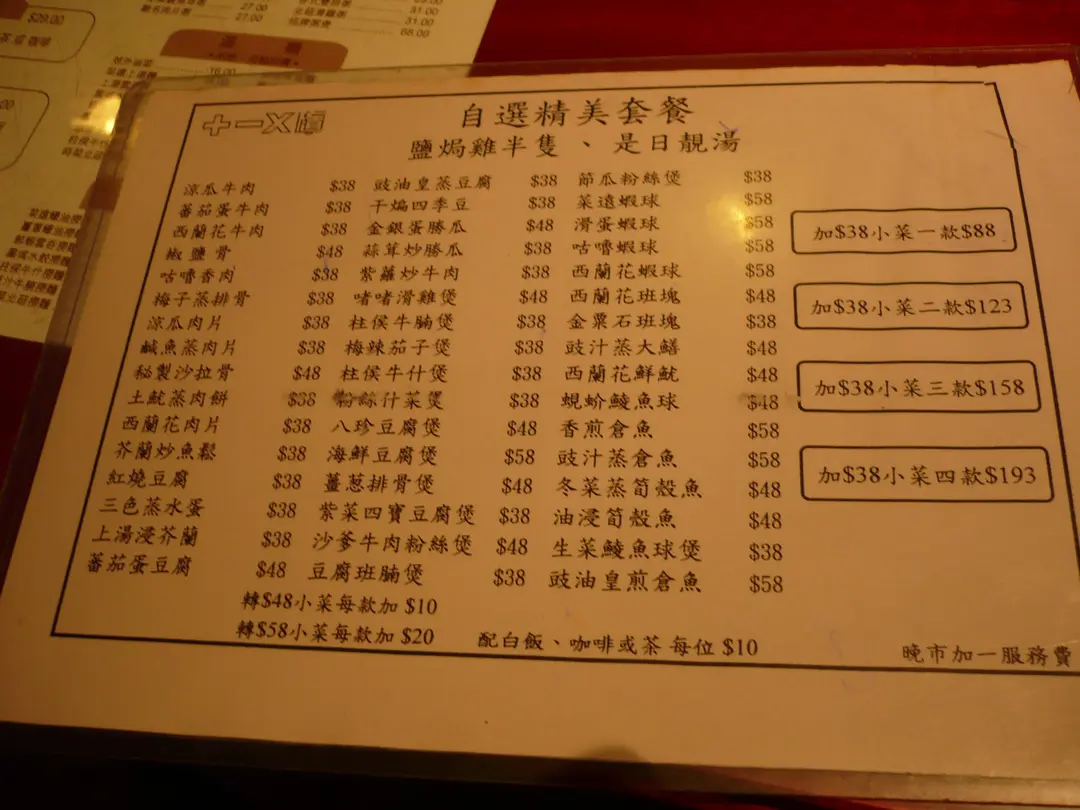 $29.00
27.00
27.00
31.00
31.00
68.00
16.00
自選精美套餐
鹽焗雞半隻、是日靚湯
涼瓜牛肉 $38 豉油皇蒸豆腐 $38 節瓜粉絲煲 $38
蕃茄蛋牛肉 $38 干煸四季豆 $38 菜遠蝦球 $58
西蘭花牛肉 $38 金銀蛋勝瓜 $48 滑蛋蝦球 $58
椒鹽骨 $48 蒜茸炒勝瓜 $38 咕嚕蝦球 $58
咕嚕香肉 $38 紫蘿炒牛肉 $38 西蘭花蝦球 $58
梅子蒸排骨 $38 啫啫滑雞煲 $48 西蘭花班塊 $48
涼瓜肉片 $38 柱侯牛腩煲 $38 金粟石班塊 $38
鹹魚蒸肉片 $38 梅辣茄子煲 $38 豉汁蒸大鱔 $48
秘製沙拉骨 $48 柱侯牛什煲 $38 西蘭花鮮魷 $48
土魷蒸肉餅 $38 粉絲什菜煲 $38 蜆蚧鯪魚球 $48
西蘭花肉片 $38 八珍豆腐煲 $48 香煎倉魚 $58
芥蘭炒魚鬆 $38 海鮮豆腐煲 $58 豉汁蒸倉魚 $58
紅燒豆腐 $38 薑葱排骨煲 $48 冬菜蒸筍殼魚 $48
三色蒸水蛋 $38 紫菜四寶豆腐煲 $38 油浸筍殼魚 $48
上湯浸芥蘭 $38 沙爹牛肉粉絲煲 $48 生菜鯪魚球煲 $38
蕃茄蛋豆腐 $48 豆腐班腩煲 $38 豉油皇煎倉魚 $58
加$38小菜一款$88
加$38小菜二款$123
加$38小菜三款$158
加$38小菜四款$193
轉$48小菜每款加 $10
轉$58小菜每款加 $20 配白飯、咖啡或茶 每位 $10
晚市加一服務費